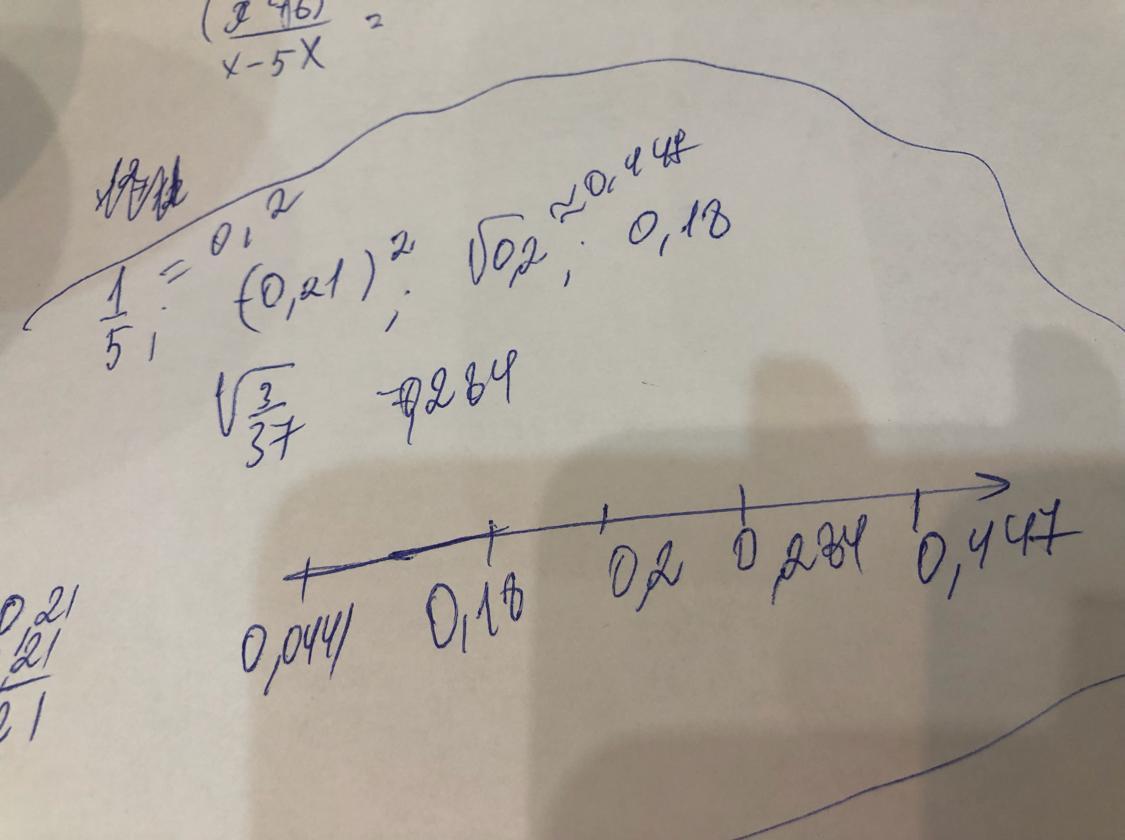 x-5x
1/5 ; = 0,2 (-0,21)² ; √0,2 ≈0,447 ; 0,18
√3/37 0,284
0,0441 0,18 0,2 0,284 0,447
0,21
,21
21